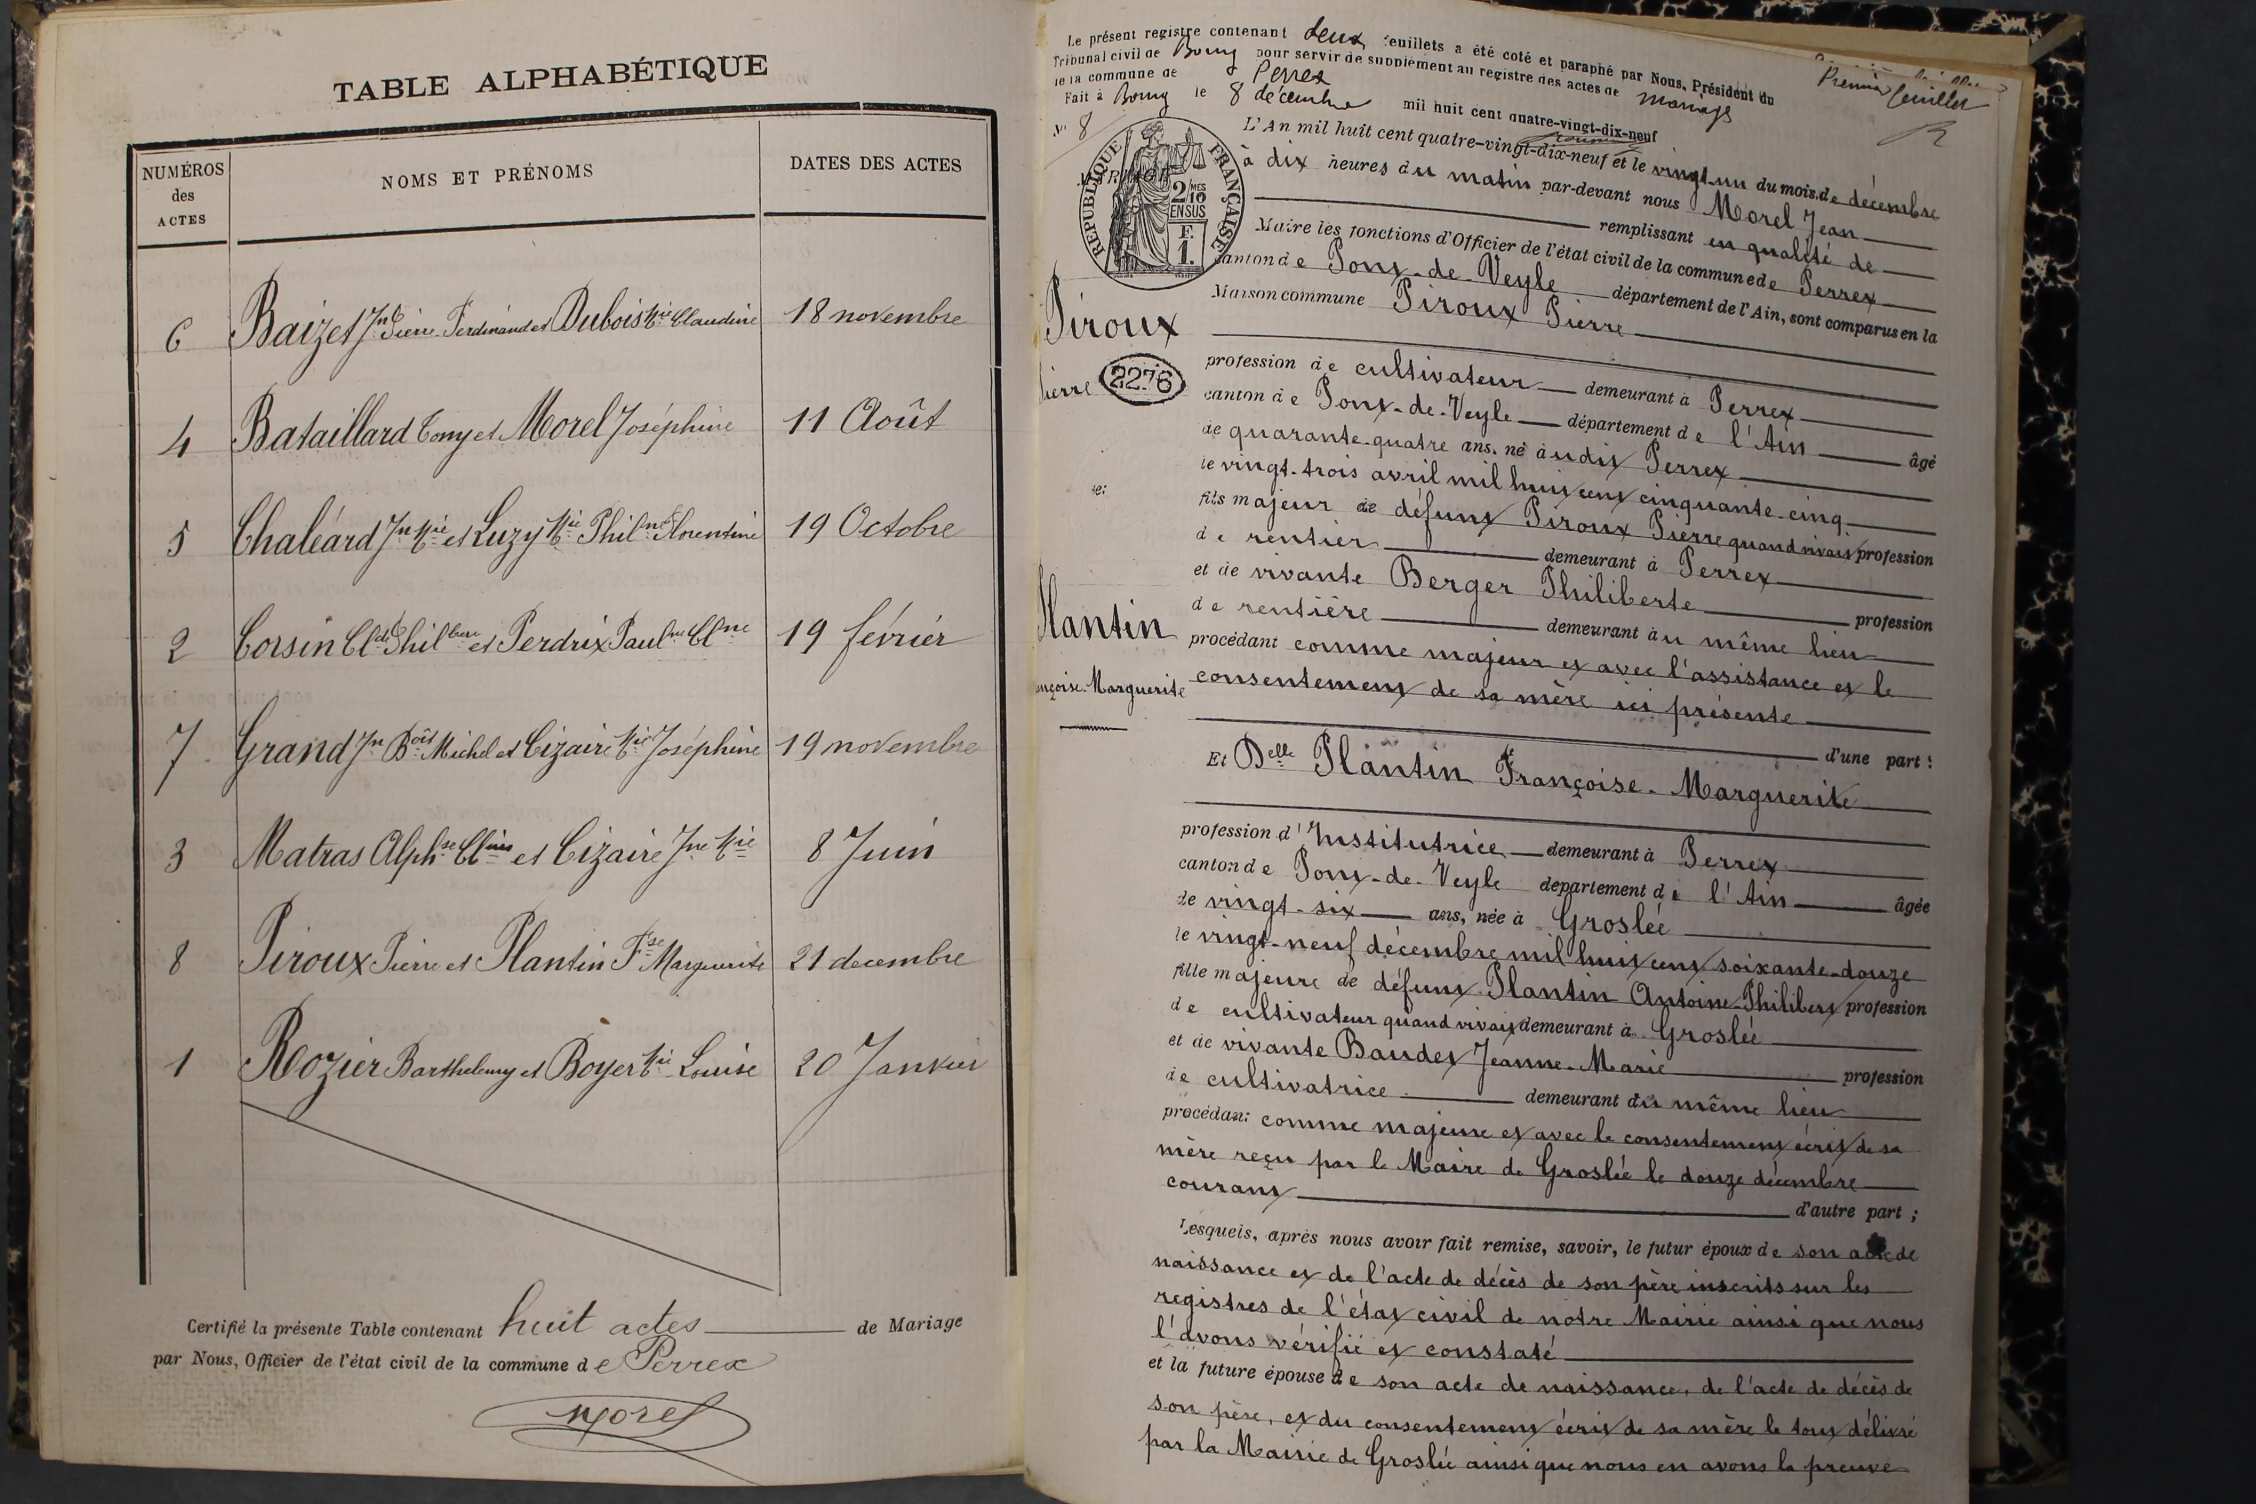 TABLE ALPHABÉTIQUE
NUMÉROS des ACTES
NOMS ET PRÉNOMS
DATES DES ACTES
6 Baizet Jn Pierre Ferdinand et Dubois Mie Claudine 18 novembre
4 Bataillard Tony et Morel Joséphine 11 Août
5 Chaléard Jn Mie et Luzy Mie Philne Florentine 19 Octobre
2 Corsin Clde Philbert et Perdrix Paulne Clne 19 février
7 Grand Jn Bte Michel et Cizaire Mie Joséphine 19 novembre
3 Matras Alphse Cl et Cizaire Jne Mie 8 Juin
8 Piroux Pierre et Plantin Fse Marguerite 21 decembre
1 Rozier Barthelemy et Boyer Mie Louise 20 Janvier
Certifié la présente Table contenant huit actes de Mariage
par Nous, Officier de l'état civil de la commune de Perrex
Morel
Le présent registre contenant deux feuillets a été coté et paraphé par Nous, Président du
Tribunal civil de Bourg pour servir de supplément au registre des actes de mariage
de la commune de Perrex
Fait à Bourg le 8 décembre mil huit cent quatre-vingt-dix-neuf
Premier feuillet
No 8
RÉPUBLIQUE FRANÇAISE
2/10 MES
EN SUS
F.
1.
L'An mil huit cent quatre-vingt-dix-neuf et le vingt-un du mois de décembre
à dix heures du matin par-devant nous Morel Jean
remplissant en qualité de
Maire les fonctions d'Officier de l'état civil de la commune de Perrex
canton de Pont-de-Veyle département de l'Ain, sont comparus en la
Maison commune Piroux Pierre
Piroux
Pierre
2276
profession de cultivateur demeurant à Perrex
canton de Pont-de-Veyle département de l'Ain âgé
de quarante-quatre ans, né audit Perrex
le vingt-trois avril mil huit cent cinquante-cinq
fils majeur de défunt Piroux Pierre quand vivait profession
de rentier demeurant à Perrex
et de vivante Berger Philiberte profession
de rentière demeurant au même lieu
procédant comme majeur et avec l'assistance et le
consentement de sa mère ici présente
d'une part :
et
Plantin
nçoise-Marguerite
Et Delle Plantin Françoise-Marguerite
profession d'Institutrice demeurant à Perrex
canton de Pont-de-Veyle département de l'Ain âgée
de vingt-six ans, née à Groslée
le vingt-neuf décembre mil huit cent soixante-douze
fille majeure de défunt Plantin Antoine-Philibert profession
de cultivateur quand vivait demeurant à Groslée
et de vivante Baudet Jeanne-Marie profession
de cultivatrice demeurant du même lieu
procédant comme majeure et avec le consentement écrit de sa
mère reçu par le Maire de Groslée le douze décembre
courant d'autre part ;
Lesquels, après nous avoir fait remise, savoir, le futur époux de son acte de
naissance et de l'acte de décès de son père inscrits sur les
registres de l'état civil de notre Mairie ainsi que nous
l'avons vérifié et constaté
et la future épouse de son acte de naissance, de l'acte de décès de
son père, et du consentement écrit de sa mère le tout délivré
par la Mairie de Groslée ainsi que nous en avons la preuve